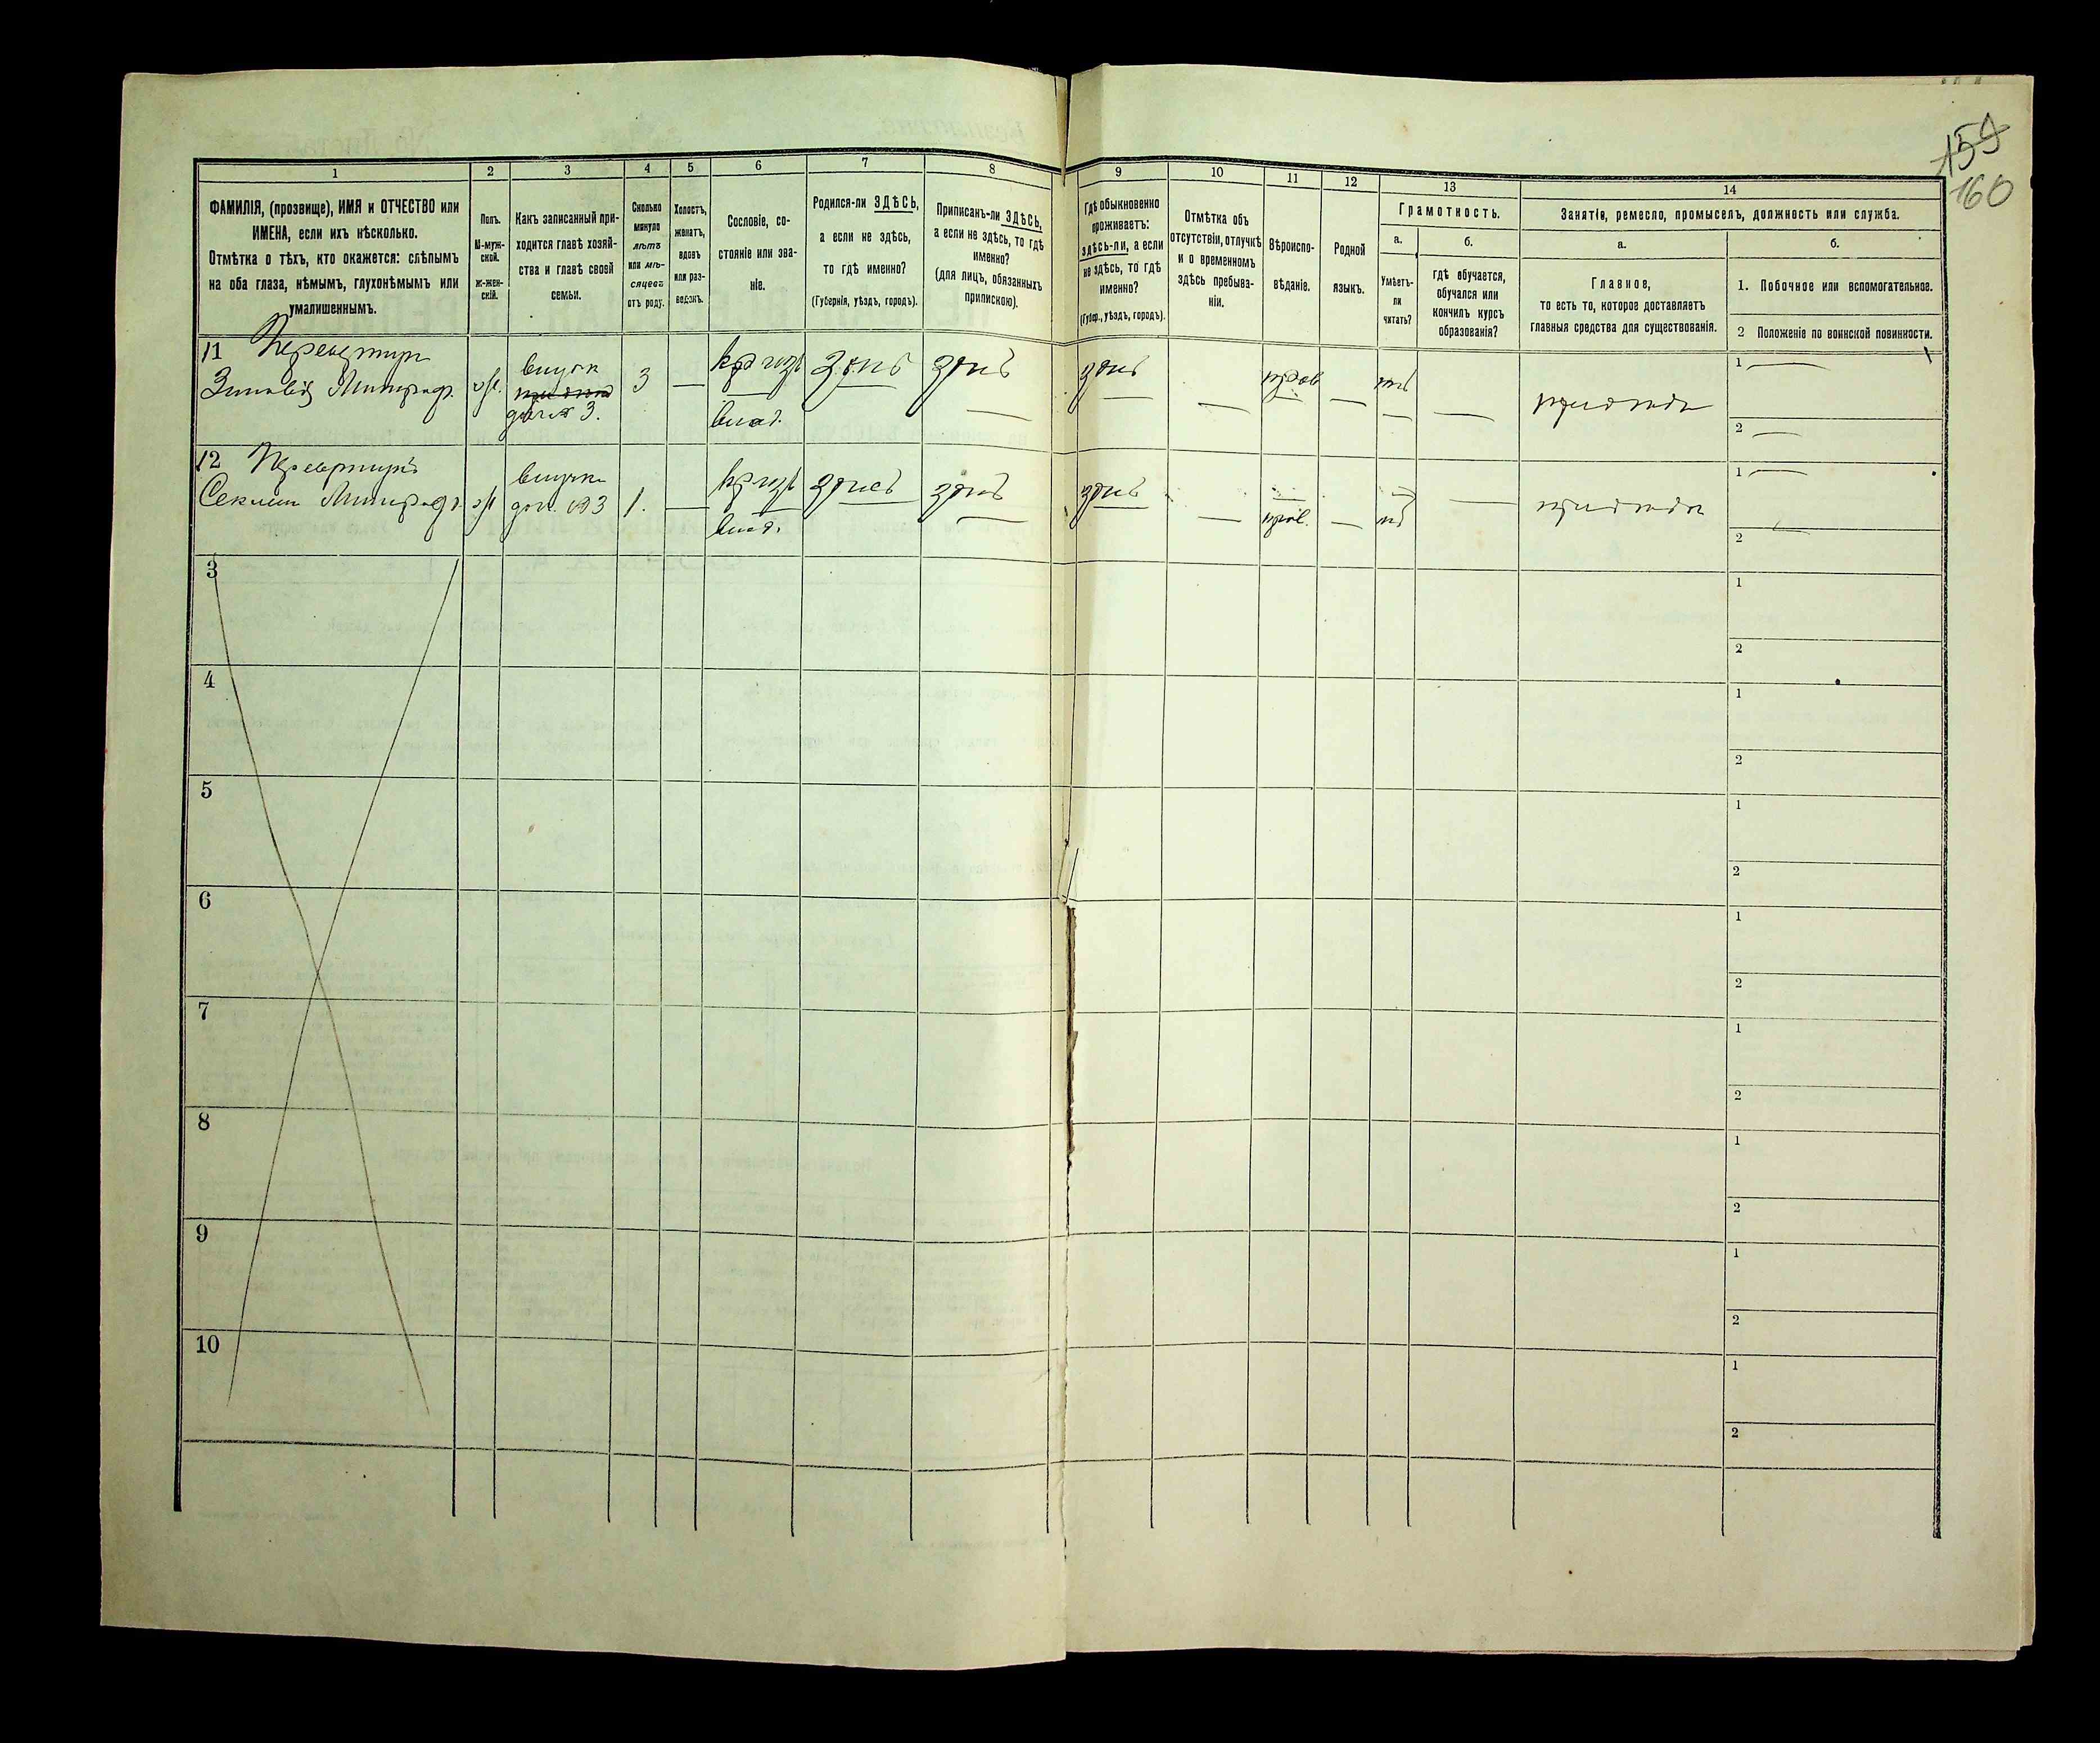 159
160
1
2
3
4
5
6
7
8
9
10
11
12
13
14
ФАМИЛІЯ, (прозвище), ИМЯ и ОТЧЕСТВО или
ИМЕНА, если ихъ нѣсколько.
Отмѣтка о тѣхъ, кто окажется: слѣпымъ
на оба глаза, нѣмымъ, глухонѣмымъ или
умалишеннымъ.
Полъ.
М-муж-
ской.
ж-жен-
скій.
Какъ записанный при-
ходится главѣ хозяй-
ства и главѣ своей
семьи.
Сколько
минуло
лѣтъ
или мѣ-
сяцевъ
отъ роду.
Холостъ,
женатъ,
вдовъ
или раз-
веденъ.
Сословіе, со-
стояніе или зва-
ніе.
Родился-ли ЗДѢСЬ,
а если не здѣсь,
то гдѣ именно?
(Губернія, уѣздъ, городъ).
Приписанъ-ли ЗДѢСЬ,
а если не здѣсь, то гдѣ
именно?
(для лицъ, обязанныхъ
припискою).
Гдѣ обыкновенно
проживаетъ:
здѣсь-ли, а если
не здѣсь, то гдѣ
именно?
(Губер., уѣздъ, городъ).
Отмѣтка объ
отсутствіи, отлучкѣ
и о временномъ
здѣсь пребыва-
ніи.
Вѣроиспо-
вѣданіе.
Родной
языкъ.
Грамотность.
а.
Умѣетъ-
ли
читать?
б.
гдѣ обучается,
обучался или
кончилъ курсъ
образованія?
Занятіе, ремесло, промыселъ, должность или служба.
а.
Главное,
то есть то, которое доставляетъ
главныя средства для существованія.
б.
1. Побочное или вспомогательное.
2 Положеніе по воинской повинности.
11
Зиновій Митроф.
3
кр изъ
влад.
здѣсь
здѣсь
здѣсь
прав
нѣтъ
1
2
12
Митроф.
внучка
1.
кр изъ
влад.
здѣсь
здѣсь
здѣсь
прав.
1
2
3
1
2
4
1
2
5
1
2
6
1
2
7
1
2
8
1
2
9
1
2
10
1
2